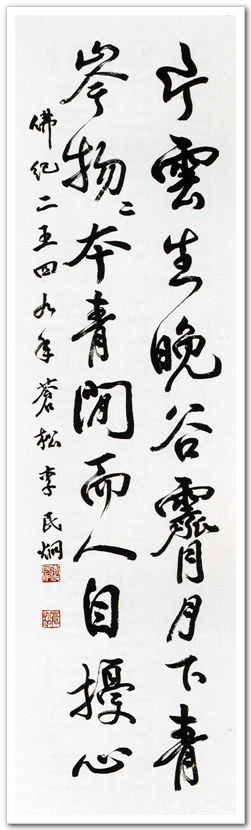 片雲生晚谷霽月下青
岑物〻本青閒而人自擾心
佛紀二五四九年蒼松李民炯